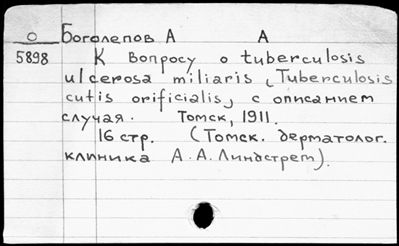 О Боголепов А А
5898 К вопросу о tuberculosis
ulcerosa miliaris (Tuberculosis
cutis orificialis) с описанием
случая. Томск, 1911.
16 стр. (Томск. дерматолог.
клиника А.А.Линдстрем).